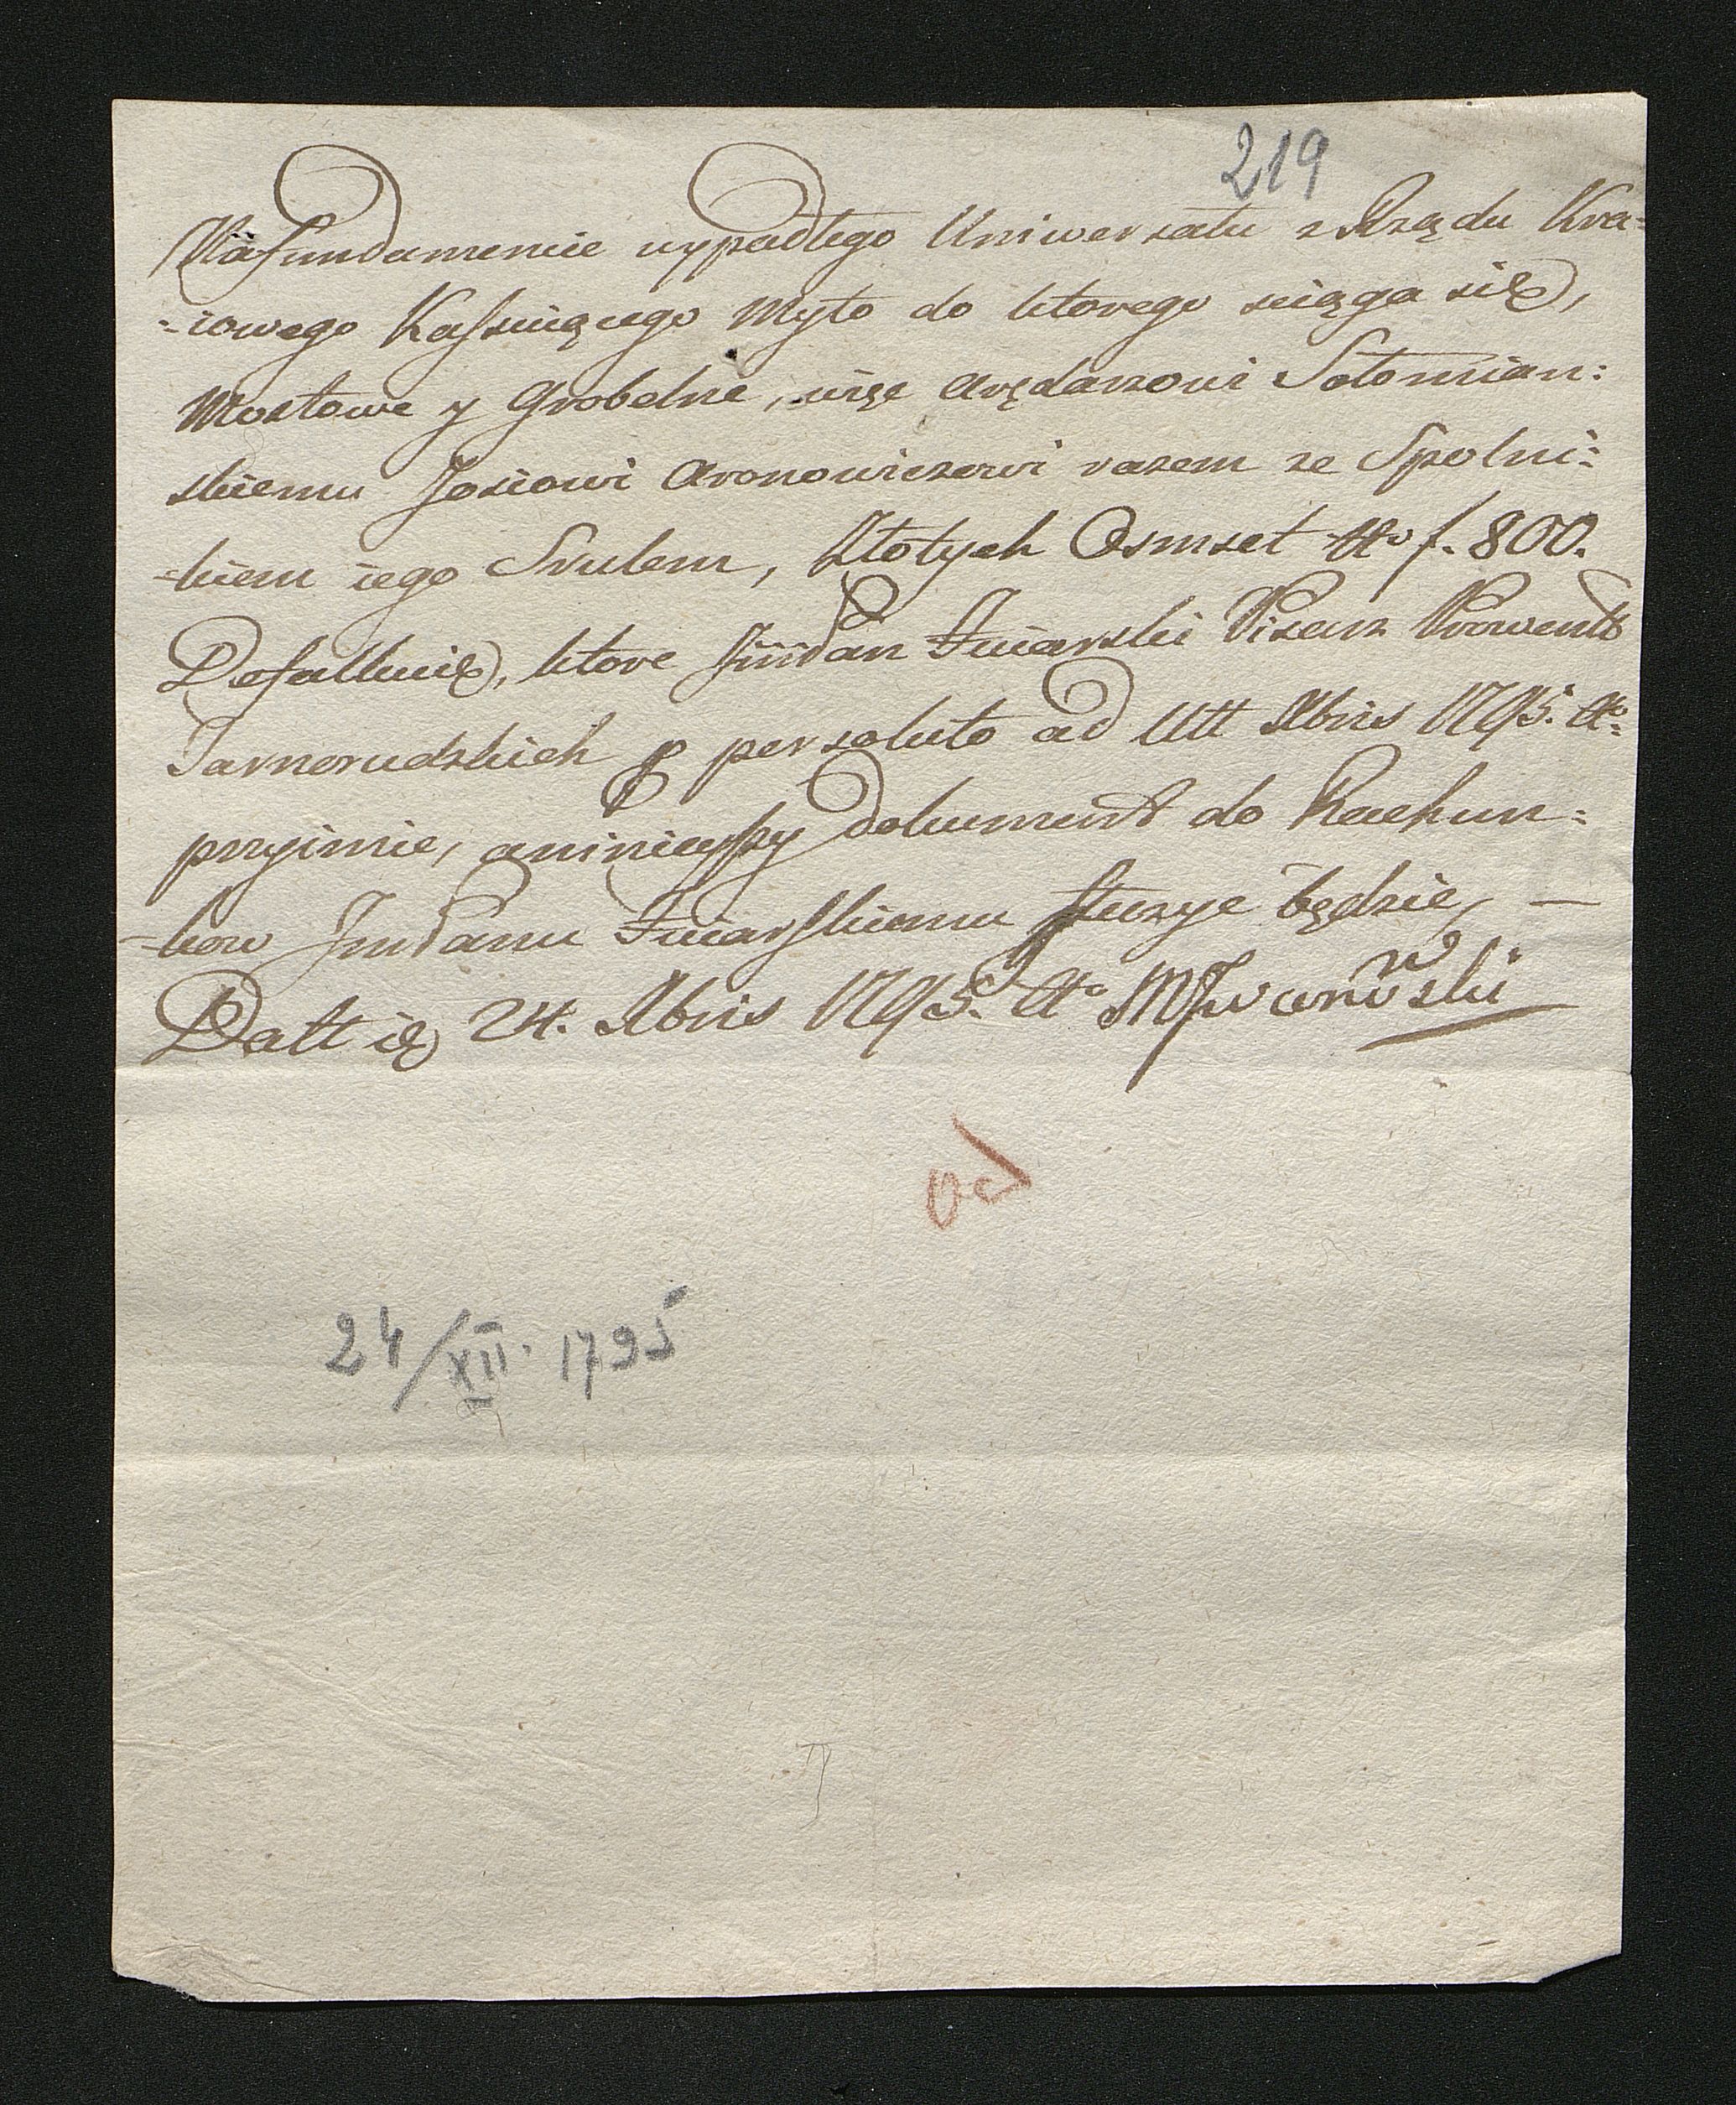 219
Nafundamencie wypadłego Uniwersału z Rządu Kra=
=iowego Kassuiącego Myto do ktorego sciąga się,
Mostowe y Grobelne, więc Arędarzowi Sotomian:
skiemu Josiowi Aronowiczowi razem ze Spolni:
-kiem iego Srulem, Złotych Osmset No f. 800.
Defalkuię, ktore JmPan Pisarz Prowent
Tarnorudskich p persoluto ad Ult Xbris 1795. Ao
przyimie, a ninieyszy dokument do Rachun=
-kow JmPanu służyć będzie, —
Datt ię 24. Xbris 1795. Ao
od
24/XII. 1795